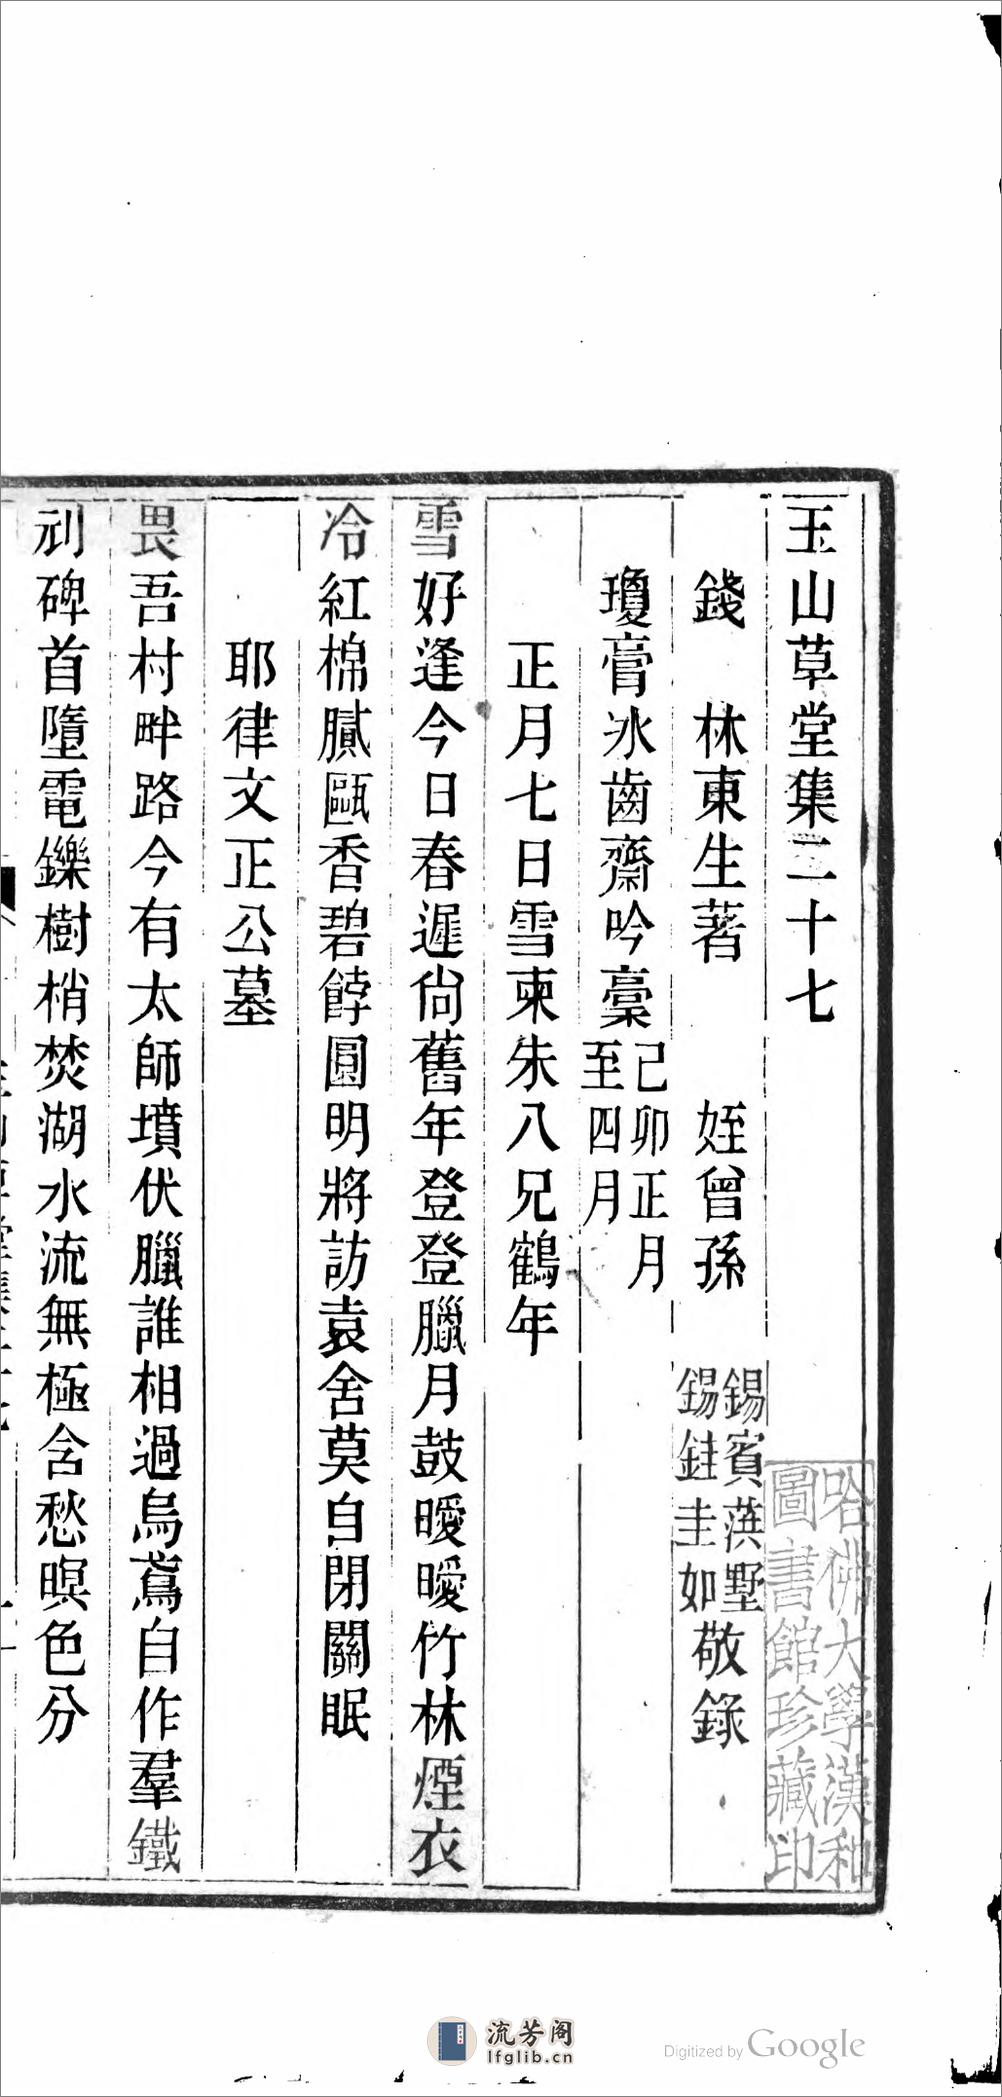 玉山草堂集二十七
錢 林東生著 姪曾孫 錫賓蕻墅 錫鉒圭如 敬錄
瓊膏冰齒齋吟稾 己卯正月至四月
正月七日雪柬朱八兄鶴年
雪好逢今日春遲尙舊年登登臘月鼓曖曖竹林煙衣
冷紅棉膩甌香碧餑圓明將訪袁舍莫自閉關眠
耶律文正公墓
畏吾村畔路今有太師墳伏臘誰相過烏鳶自作羣鐵
刓碑首墮電鑠樹梢焚湖水流無極含愁暝色分
哈佛大學漢和圖書館珍藏印
流芳阁
lfglib.cn
Digitized by Google